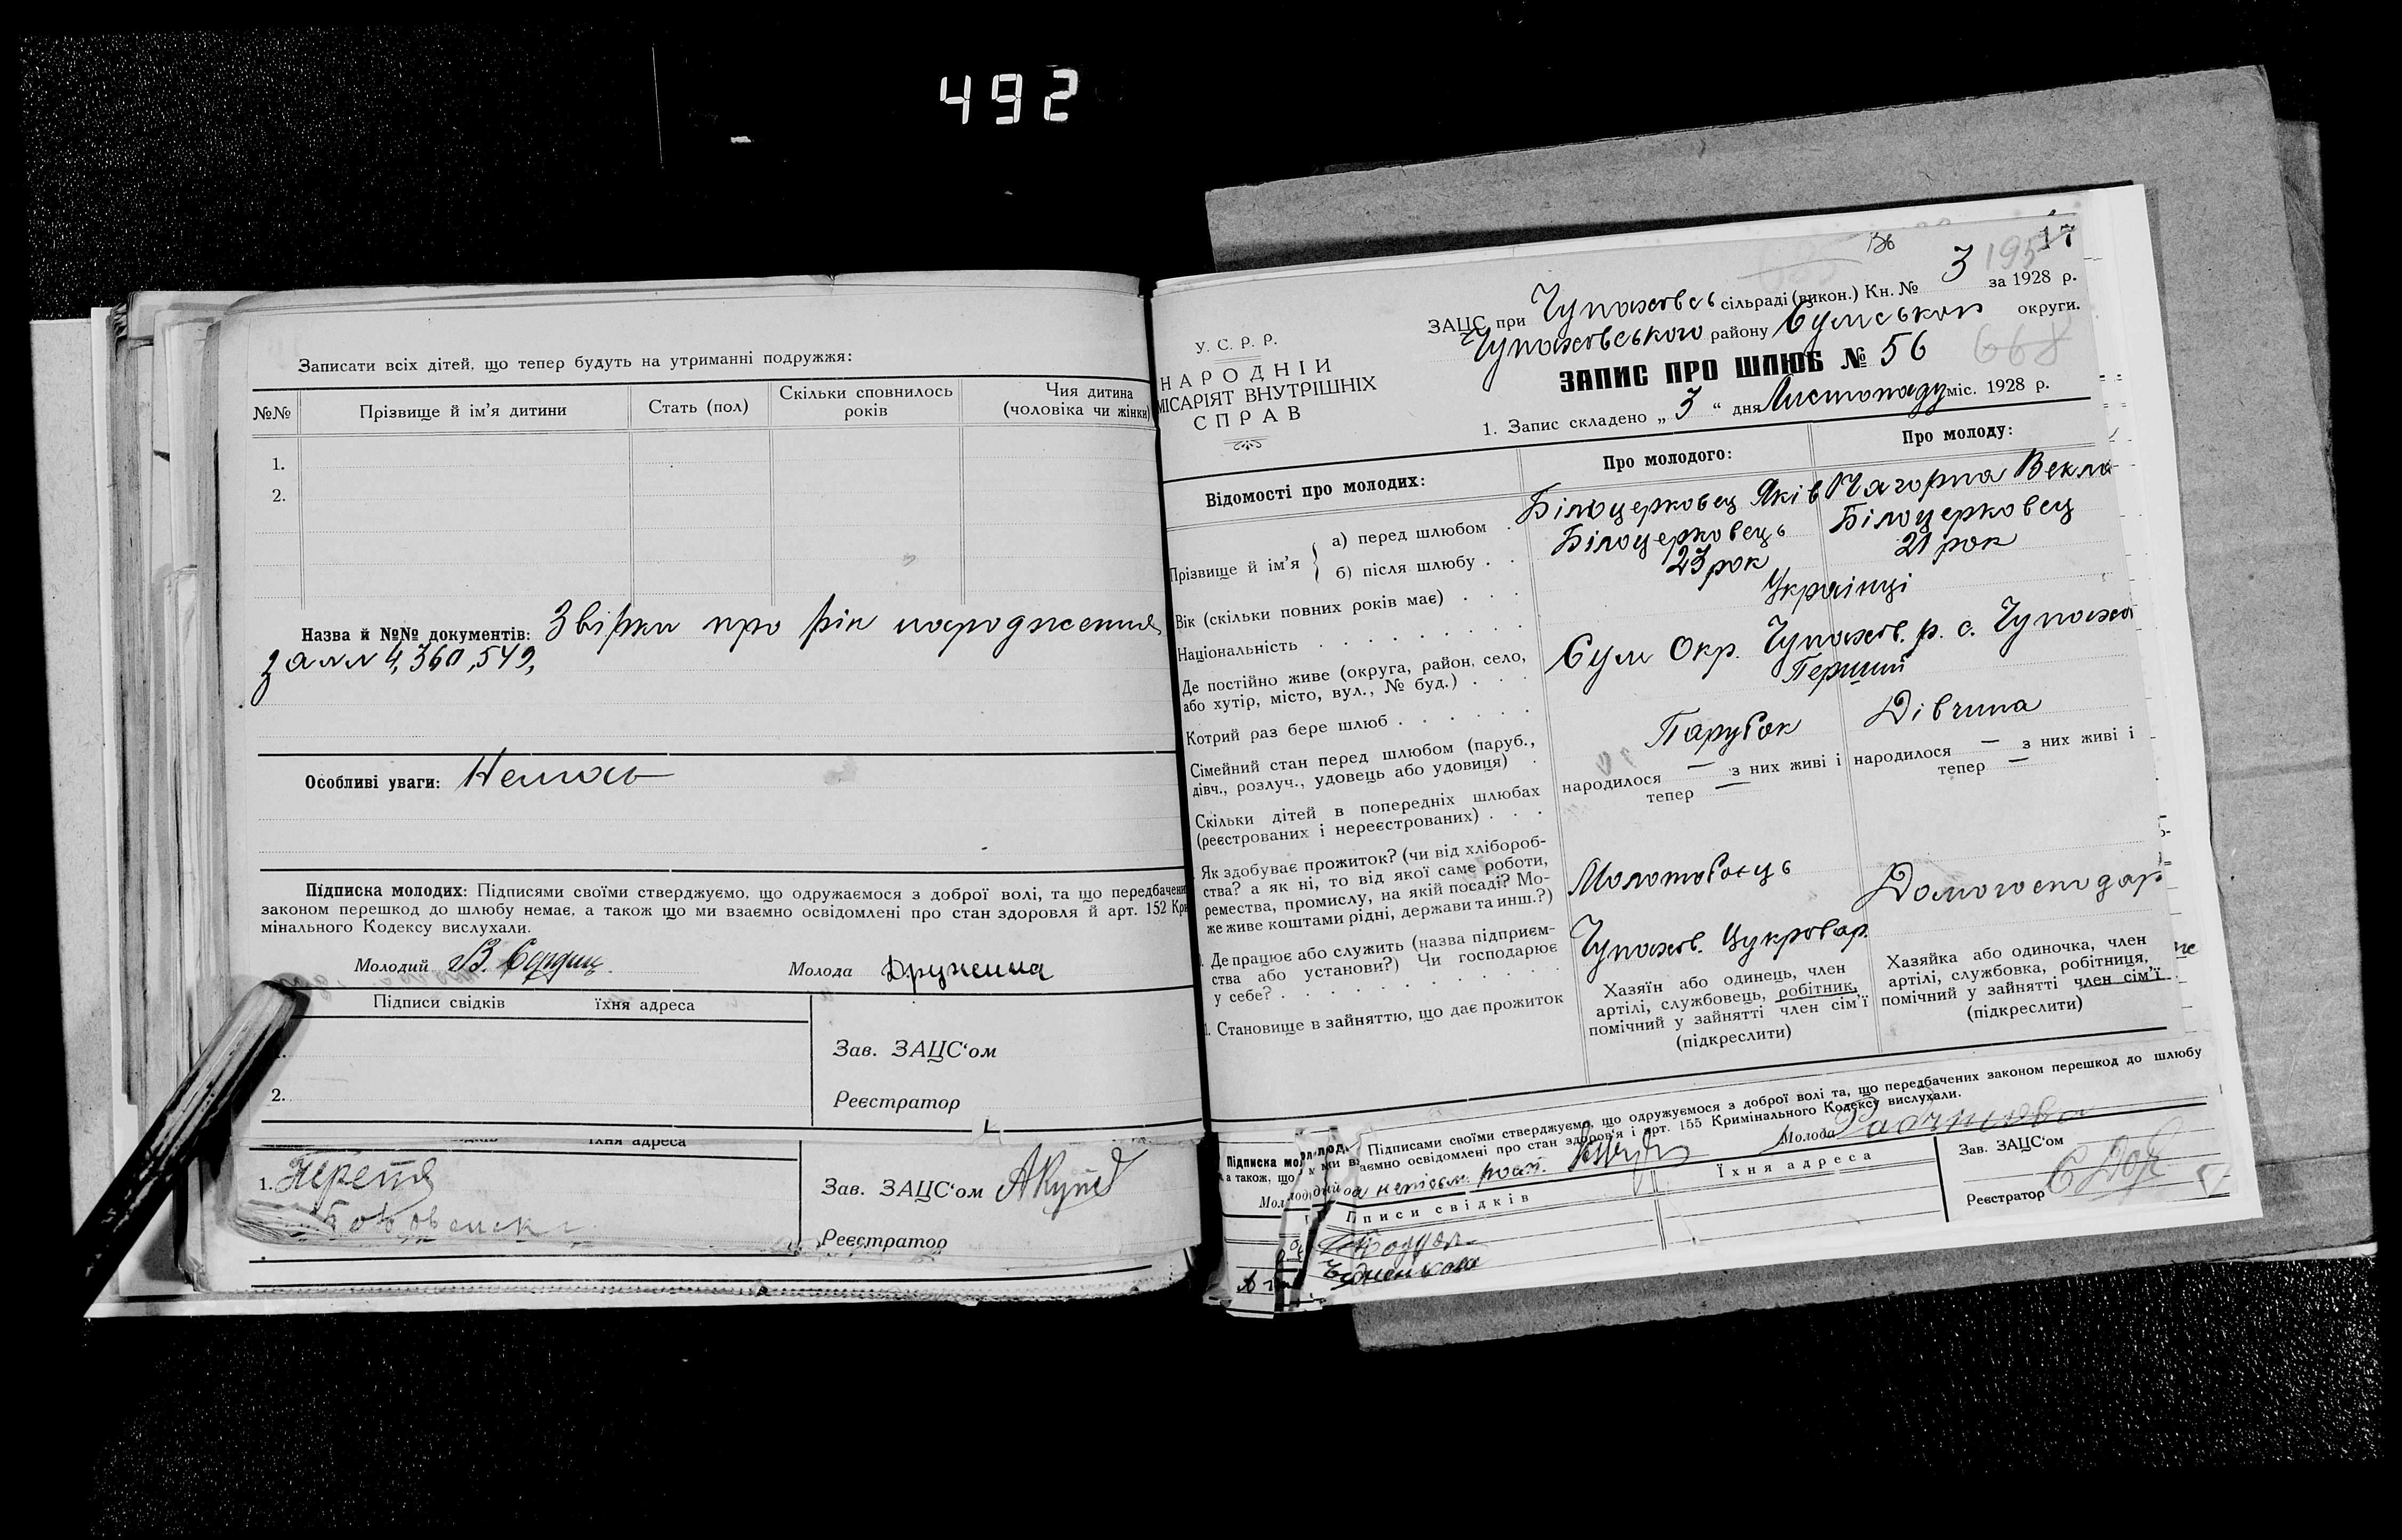 492
Записати всіх дітей, що тепер будуть на утриманні подружжя:
№№ Прізвище й ім'я дитини Стать (пол) Скільки сповнилось років Чия дитина (чоловіка чи жінки)
1.
2.
Назва й №№ документів: Звірки про рік народження
за №№ 4,360,549,
Особливі уваги: Немає
Підписка молодих: Підписями своїми стверджуємо, що одружаємося з доброї волі, та що передбачени
законом перешкод до шлюбу немає, а також що ми взаємно освідомлені про стан здоровля й арт. 152 Кри
мінального Кодексу вислухали.
Молодий В. Молода Дружина
Підписи свідків їхня адреса
Зав. ЗАЦС'ом
2.
Реєстратор
їхня адреса
1.
Зав. ЗАЦС'ом
Реєстратор
136
195 17
ЗАЦС при Чупахівсь сільраді (викон.) Кн. № 3 за 1928 р.
Чупахівського району Сумськой округи.
У. С. Р. Р.
НАРОДНІЙ
МІСАРІЯТ ВНУТРІШНІХ
СПРАВ
ЗАПИС ПРО ШЛЮБ № 56 668
1. Запис складено „ 3 “ дня Листопаду міс. 1928 р.
Відомості про молодих: Про молодого: Про молоду:
Прізвище й ім'я
а) перед шлюбом Білоцерковец Яків Нагорна Векла
б) після шлюбу Білоцерковець Білоцерковец
Вік (скільки повних років має) 23 рок 21 рок
Національність Українці
Де постійно живе (округа, район, село,
або хутір, місто, вул., № буд.) Сум Окр. Чупахов. р. с. Чупаха
Котрий раз бере шлюб Перший
Сімейний стан перед шлюбом (паруб.,
дівч., розлуч., удовець або удовиця) Парубок Дівчина
Скільки дітей в попередніх шлюбах
(реєстрованих і нереєстрованих)
народилося — з них живі і
тепер —
народилося — з них живі і
тепер —
Як здобуває прожиток? (чи від хлібороб-
ства? а як ні, то від якої саме роботи,
ремества, промислу, на якій посаді? Мо-
же живе коштами рідні, держави та инш.?)
Молотобоєць Домогосподар
Де працює або служить (назва підприєм-
ства або установи?) Чи господарює
у себе?
Чупахов. Цукровар.
Становище в зайняттю, що дає прожиток
Хазяїн або одинець, член
артілі, службовець, робітник,
помічний у зайнятті член сім'ї
(підкреслити)
Хазяйка або одиночка, член
артілі, службовка, робітниця,
помічний у зайнятті член сім'ї
(підкреслити)
Підписка мол
а також, що
Підписами своїми стверджуємо, що одружуємося з доброї волі та, що передбачених законом перешкод до шлюбу
аємно освідомлені про стан здоров'я і арт. 155 Кримінального Кодексу вислухали.
Молода
писи свідків Їхня адреса
Зав. ЗАЦС'ом
Реєстратор